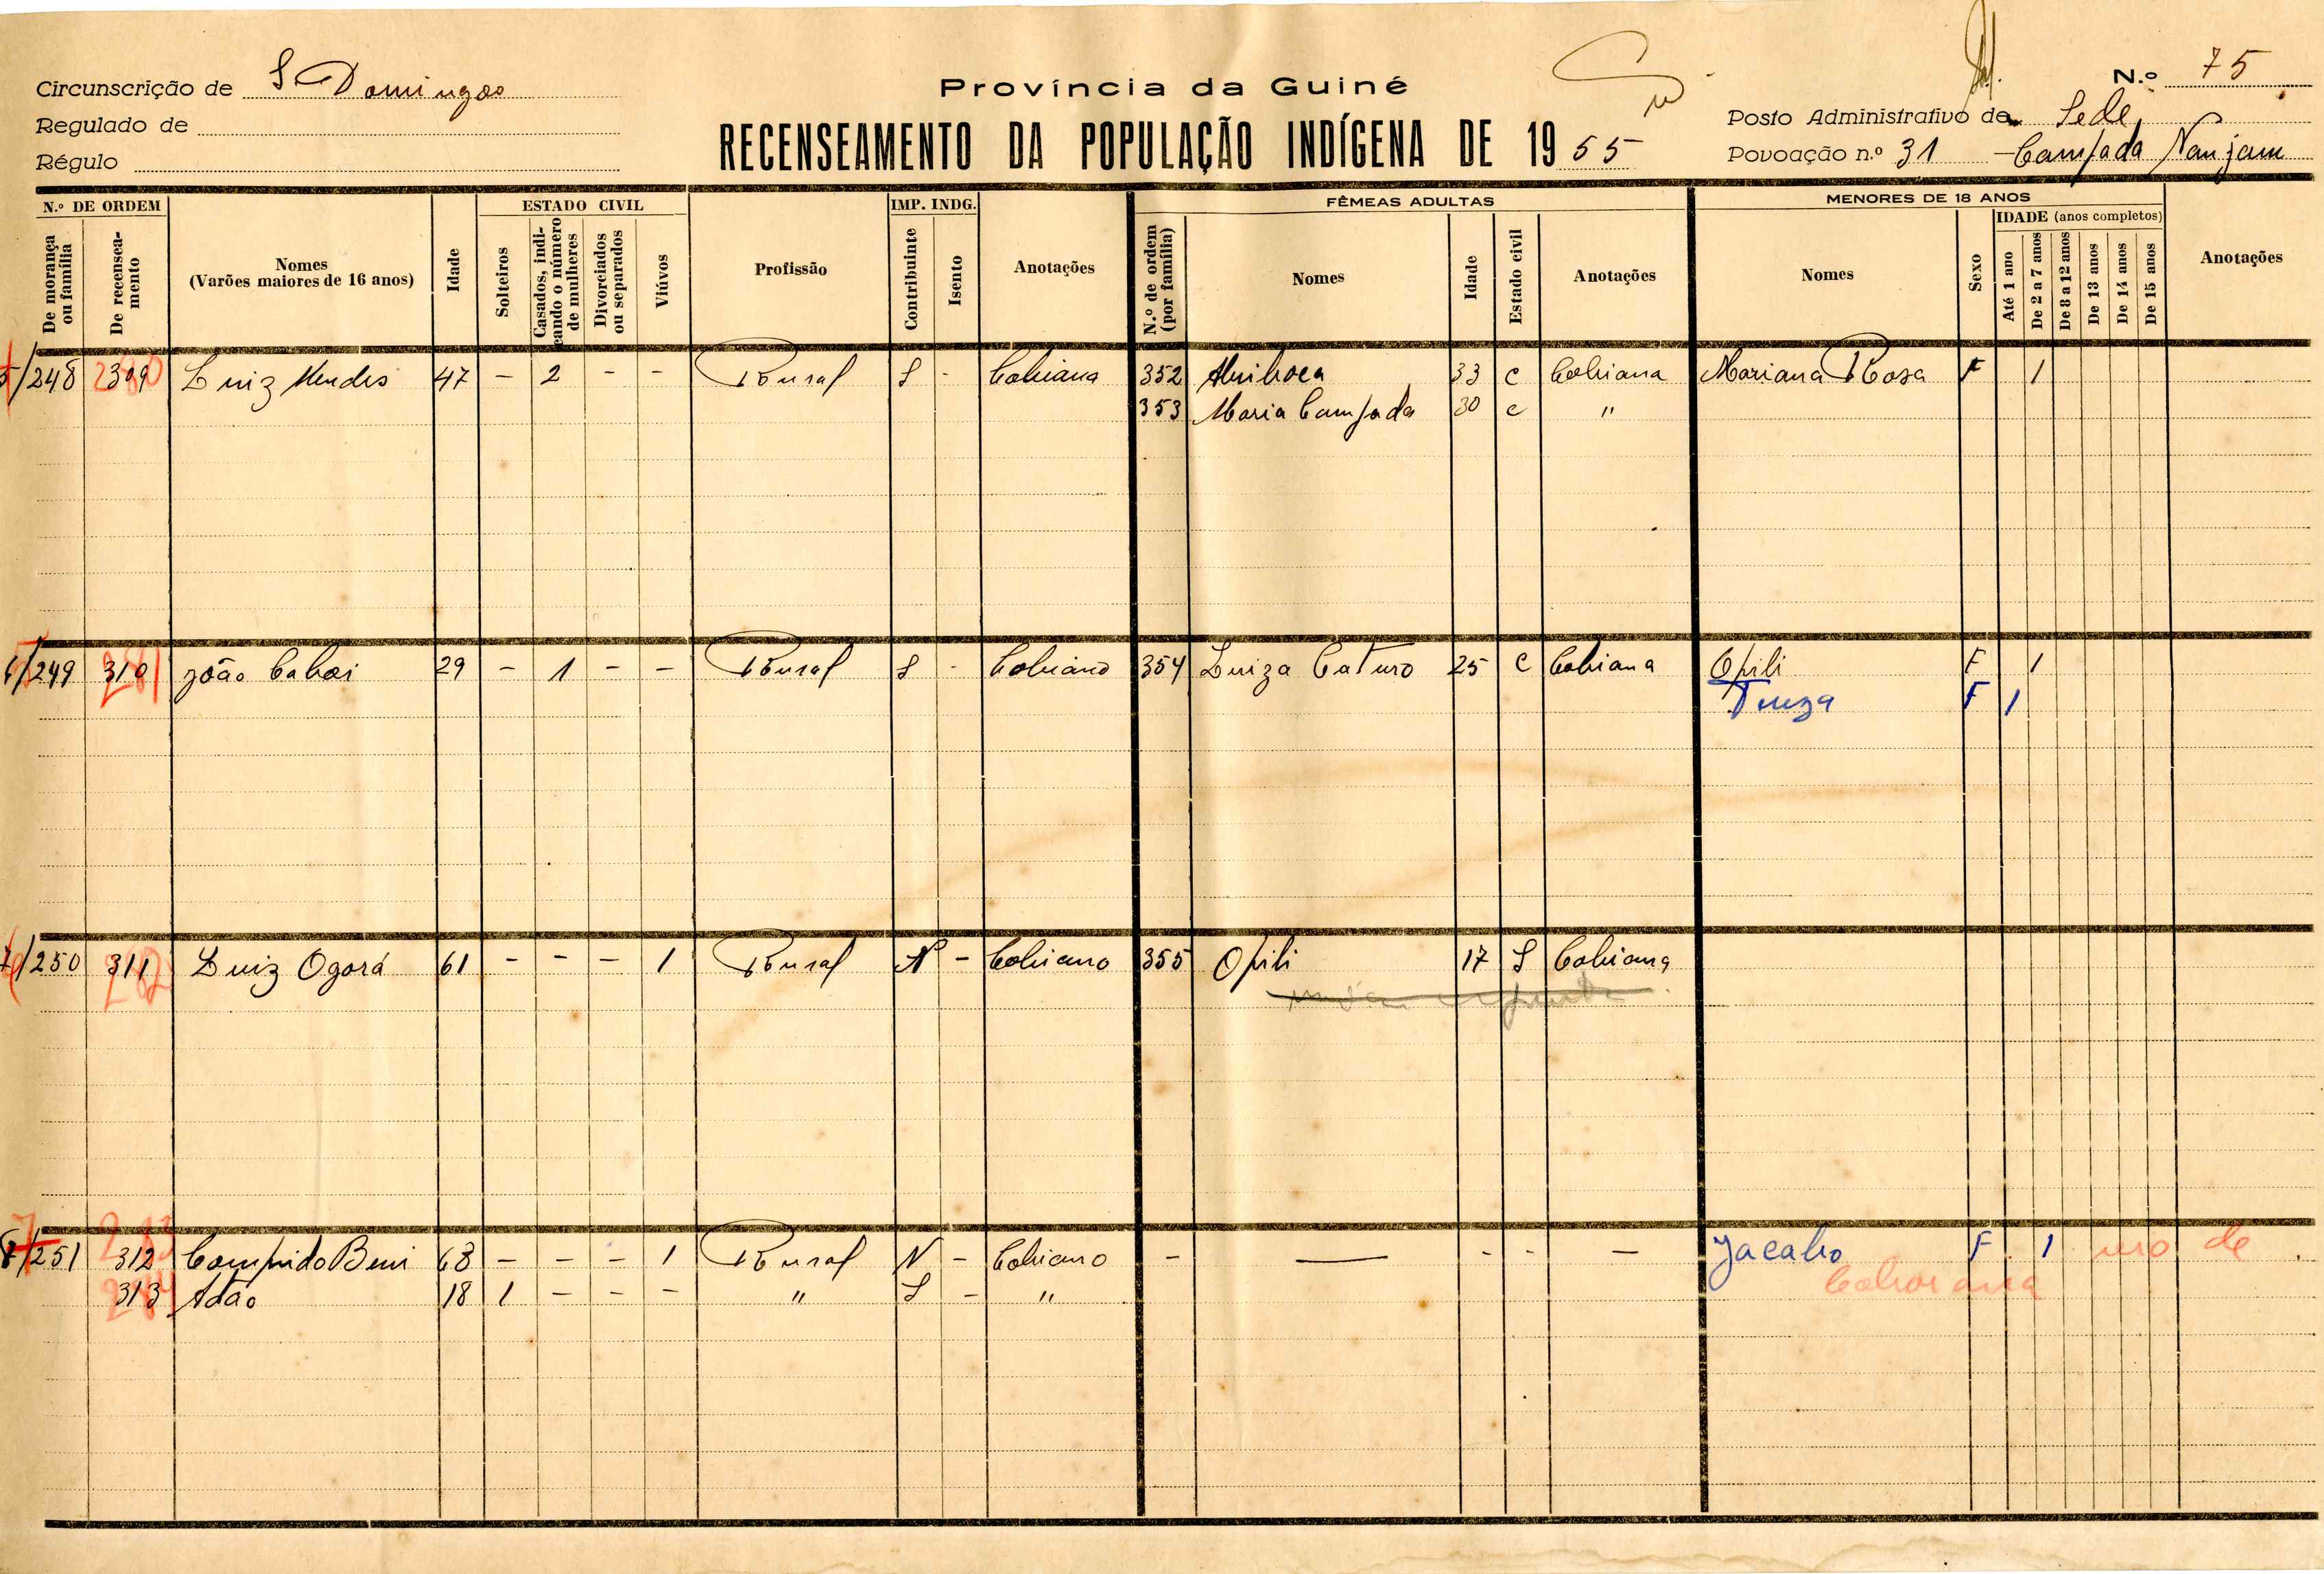 Circunscrição de S. Domingos
Regulado de
Régulo
Província da Guiné
RECENSEAMENTO DA POPULAÇÃO INDÍGENA DE 1955
N.º 75
Posto Administrativo de Sede
Povoação n.º 31 - Campada Nanjam
N.º DE ORDEM
De morança ou família
De recenseamento
Nomes
(Varões maiores de 16 anos)
Idade
ESTADO CIVIL
Solteiros
Casados, indicando o número de mulheres
Divorciados ou separados
Viúvos
Profissão
IMP. INDG.
Contribuinte
Isento
Anotações
FÊMEAS ADULTAS
N.º de ordem (por família)
Nomes
Idade
Estado civil
Anotações
MENORES DE 18 ANOS
Nomes
Sexo
IDADE (anos completos)
Até 1 ano
De 2 a 7 anos
De 8 a 12 anos
De 13 anos
De 14 anos
De 15 anos
Anotações
5/248 309 Luiz Mendes 47 - 2 - - Rural S - Cobiana 352 33 C Cobiana Mariana Rosa F 1
353 Maria Campada 30 C "
6/249 310 João Caboi 29 - 1 - - Rural S - Cobiano 354 Luiza Caturo 25 C Cobiana Opili F 1
F 1
7/250 311 Luiz Ogorá 61 - - - 1 Rural N - Cobiano 355 Opili 17 S Cobiana
8/251 312 Comprido Beni 68 - - - 1 Rural N - Cobiano - — - - — Jacabo F 1
313 Adão 18 1 - - - " S - "
280
281
282
7 283
284